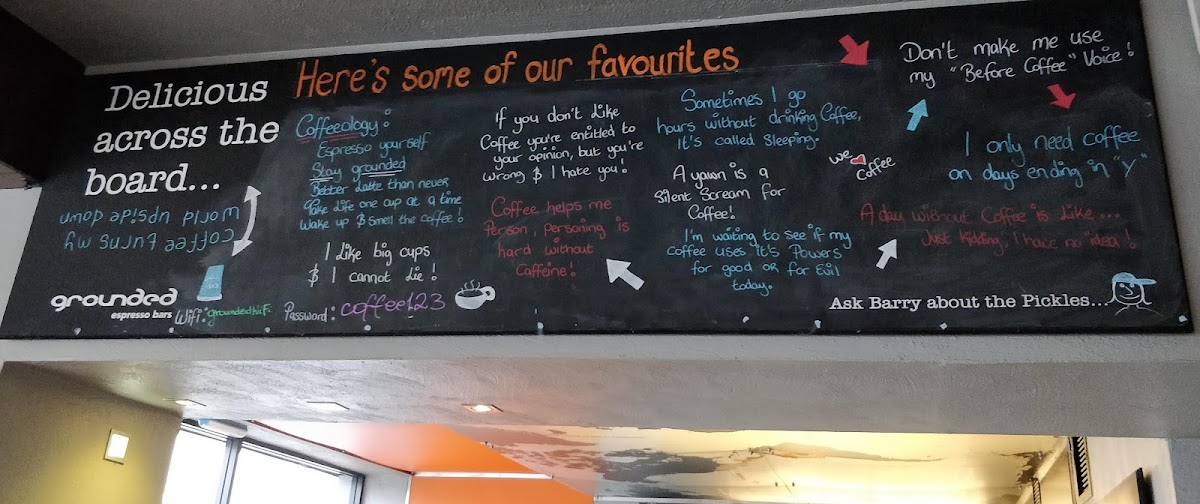 Delicious
across the
board...
Coffee turns my
world upside down
grounded
espresso bars
Wifi: groundedwifi Password: coffee123
Here's some of our favourites
Coffeeology:
Espresso yourself
Stay grounded
Better Latte than never
Take Life one cup at a time
Wake up & Smell the Coffee!
I Like big cups
& I cannot Lie!
If you don't Like
Coffee you're entitled to
your opinion, but you're
wrong & I hate you!
Coffee helps me
Person, Personing is
hard without
Caffeine!
Sometimes I go
hours without drinking Coffee,
it's called Sleeping.
A yawn is a
Silent Scream for
Coffee!
I'm waiting to see if my
coffee uses it's Powers
for good or for Evil
today.
we
Coffee
Don't make me use
my "Before Coffee" Voice!
I only need coffee
on days ending in "y"
A day without Coffee is Like...
Just kidding, I have no idea!
Ask Barry about the Pickles...